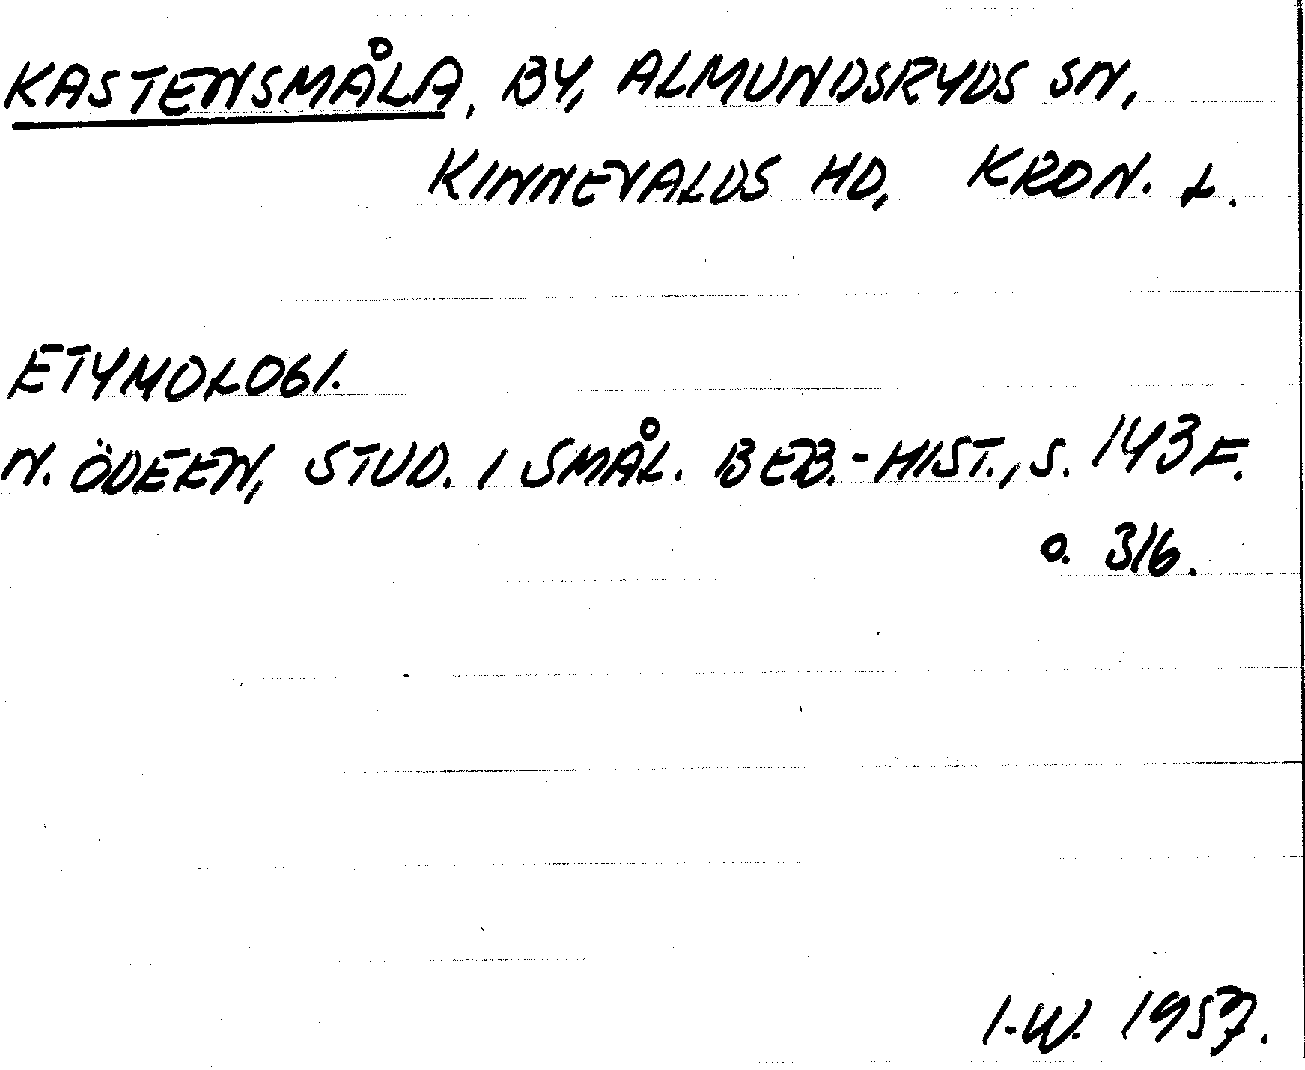 KASTENSMÅLA, BY, ALMUNDSRYDS SN,
KINNEVALDS HD, KRON. L.
ETYMOLOGI.
N. ÖDEEN, STUD. I SMÅL. BEB.-HIST., S. 143 F.
O. 316.
I-W. 1957.